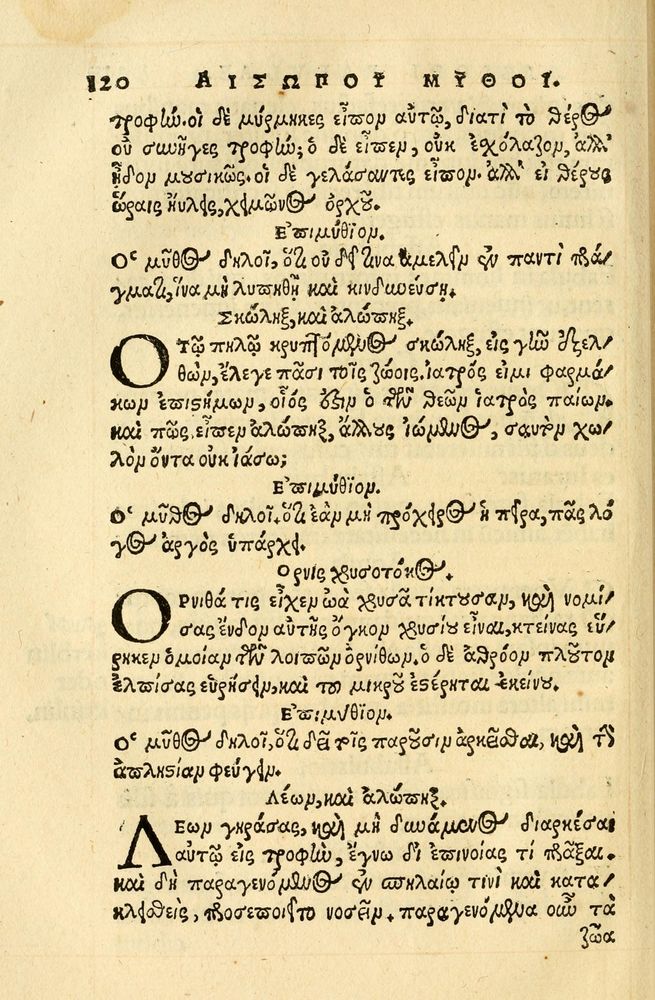 120 ΑΙΣΩΠΟΥ ΜΥΘΟΙ.
τροφήν. οἱ δὲ μύρμηκες εἶπον αὐτῷ, διατί τὸ θέρος
οὐ συνῆγες τροφήν; ὁ δὲ εἶπεν, οὐκ ἐχόλαζον, ἀλλ'
ᾖδον μουσικῶς. οἱ δὲ γελάσαντες εἶπον. ἀλλ' εἰ θέρους
ὥραις ηὔλεις, χειμῶνος ὀρχοῦ.
Ἐπιμύθιον.
Ὁ μῦθος δηλοῖ, ὅτι οὐ δεῖ τινα ἀμελεῖν ἐν παντὶ πρά/
γματι, ἵνα μὴ λυπηθῇ καὶ κινδυνεύσῃ.
Σκώληξ, καὶ ἀλώπηξ.
Ὁ τῷ πηλῷ κρυπτόμενος σκώληξ, εἰς γῆν ἐξελ/
θὼν, ἔλεγε πᾶσι τοῖς ζώοις. ἰατρός εἰμι φαρμά/
κων ἐπιστήμων, οἷός ἐστιν ὁ τῶν θεῶν ἰατρὸς παίων.
καὶ πῶς, εἶπεν ἀλώπηξ, ἄλλους ἰώμενος, σαυτὸν χω/
λὸν ὄντα οὐκ ἰάσω;
Ἐπιμύθιον.
Ὁ μῦθος δηλοῖ. ὅτι ἐὰν μὴ πρόχειρος ἡ πεῖρα, πᾶς λό
γος ἀργὸς ὑπάρχει.
Ορνις χρυσοτόκος.
ΟΡνιθά τις εἶχεν ὠὰ χρυσᾶ τίκτουσαν, καὶ νομί/
σας ἔνδον αὐτῆς ὄγκον χρυσίου εἶναι, κτείνας εὕ/
ρηκεν ὁμοίαν τῶν λοιπῶν ὀρνίθων. ὁ δὲ ἀθρόον πλοῦτον
ἐλπίσας εὑρήσειν, καὶ τοῦ μικροῦ ἐστέρηται ἐκείνου.
Ἐπιμύθιον.
Ὁ μῦθος δηλοῖ, ὅτι δεῖ τοῖς παροῦσιν ἀρκεῖσθαι, καὶ τὴν
ἀπληστίαν φεύγειν.
Λέων, καὶ ἀλώπηξ.
ΛΕων γηράσας, καὶ μὴ δυνάμενος διαρκέσαι
αὑτῷ εἰς τροφὴν, ἔγνω δι' ἐπινοίας τί πρᾶξαι.
καὶ δὴ παραγενόμενος ἐν σπηλαίῳ τινὶ καὶ κατα/
κλειθεὶς, προσεποιεῖτο νοσεῖν. παραγενόμενα οὖν τὰ
ζῶα